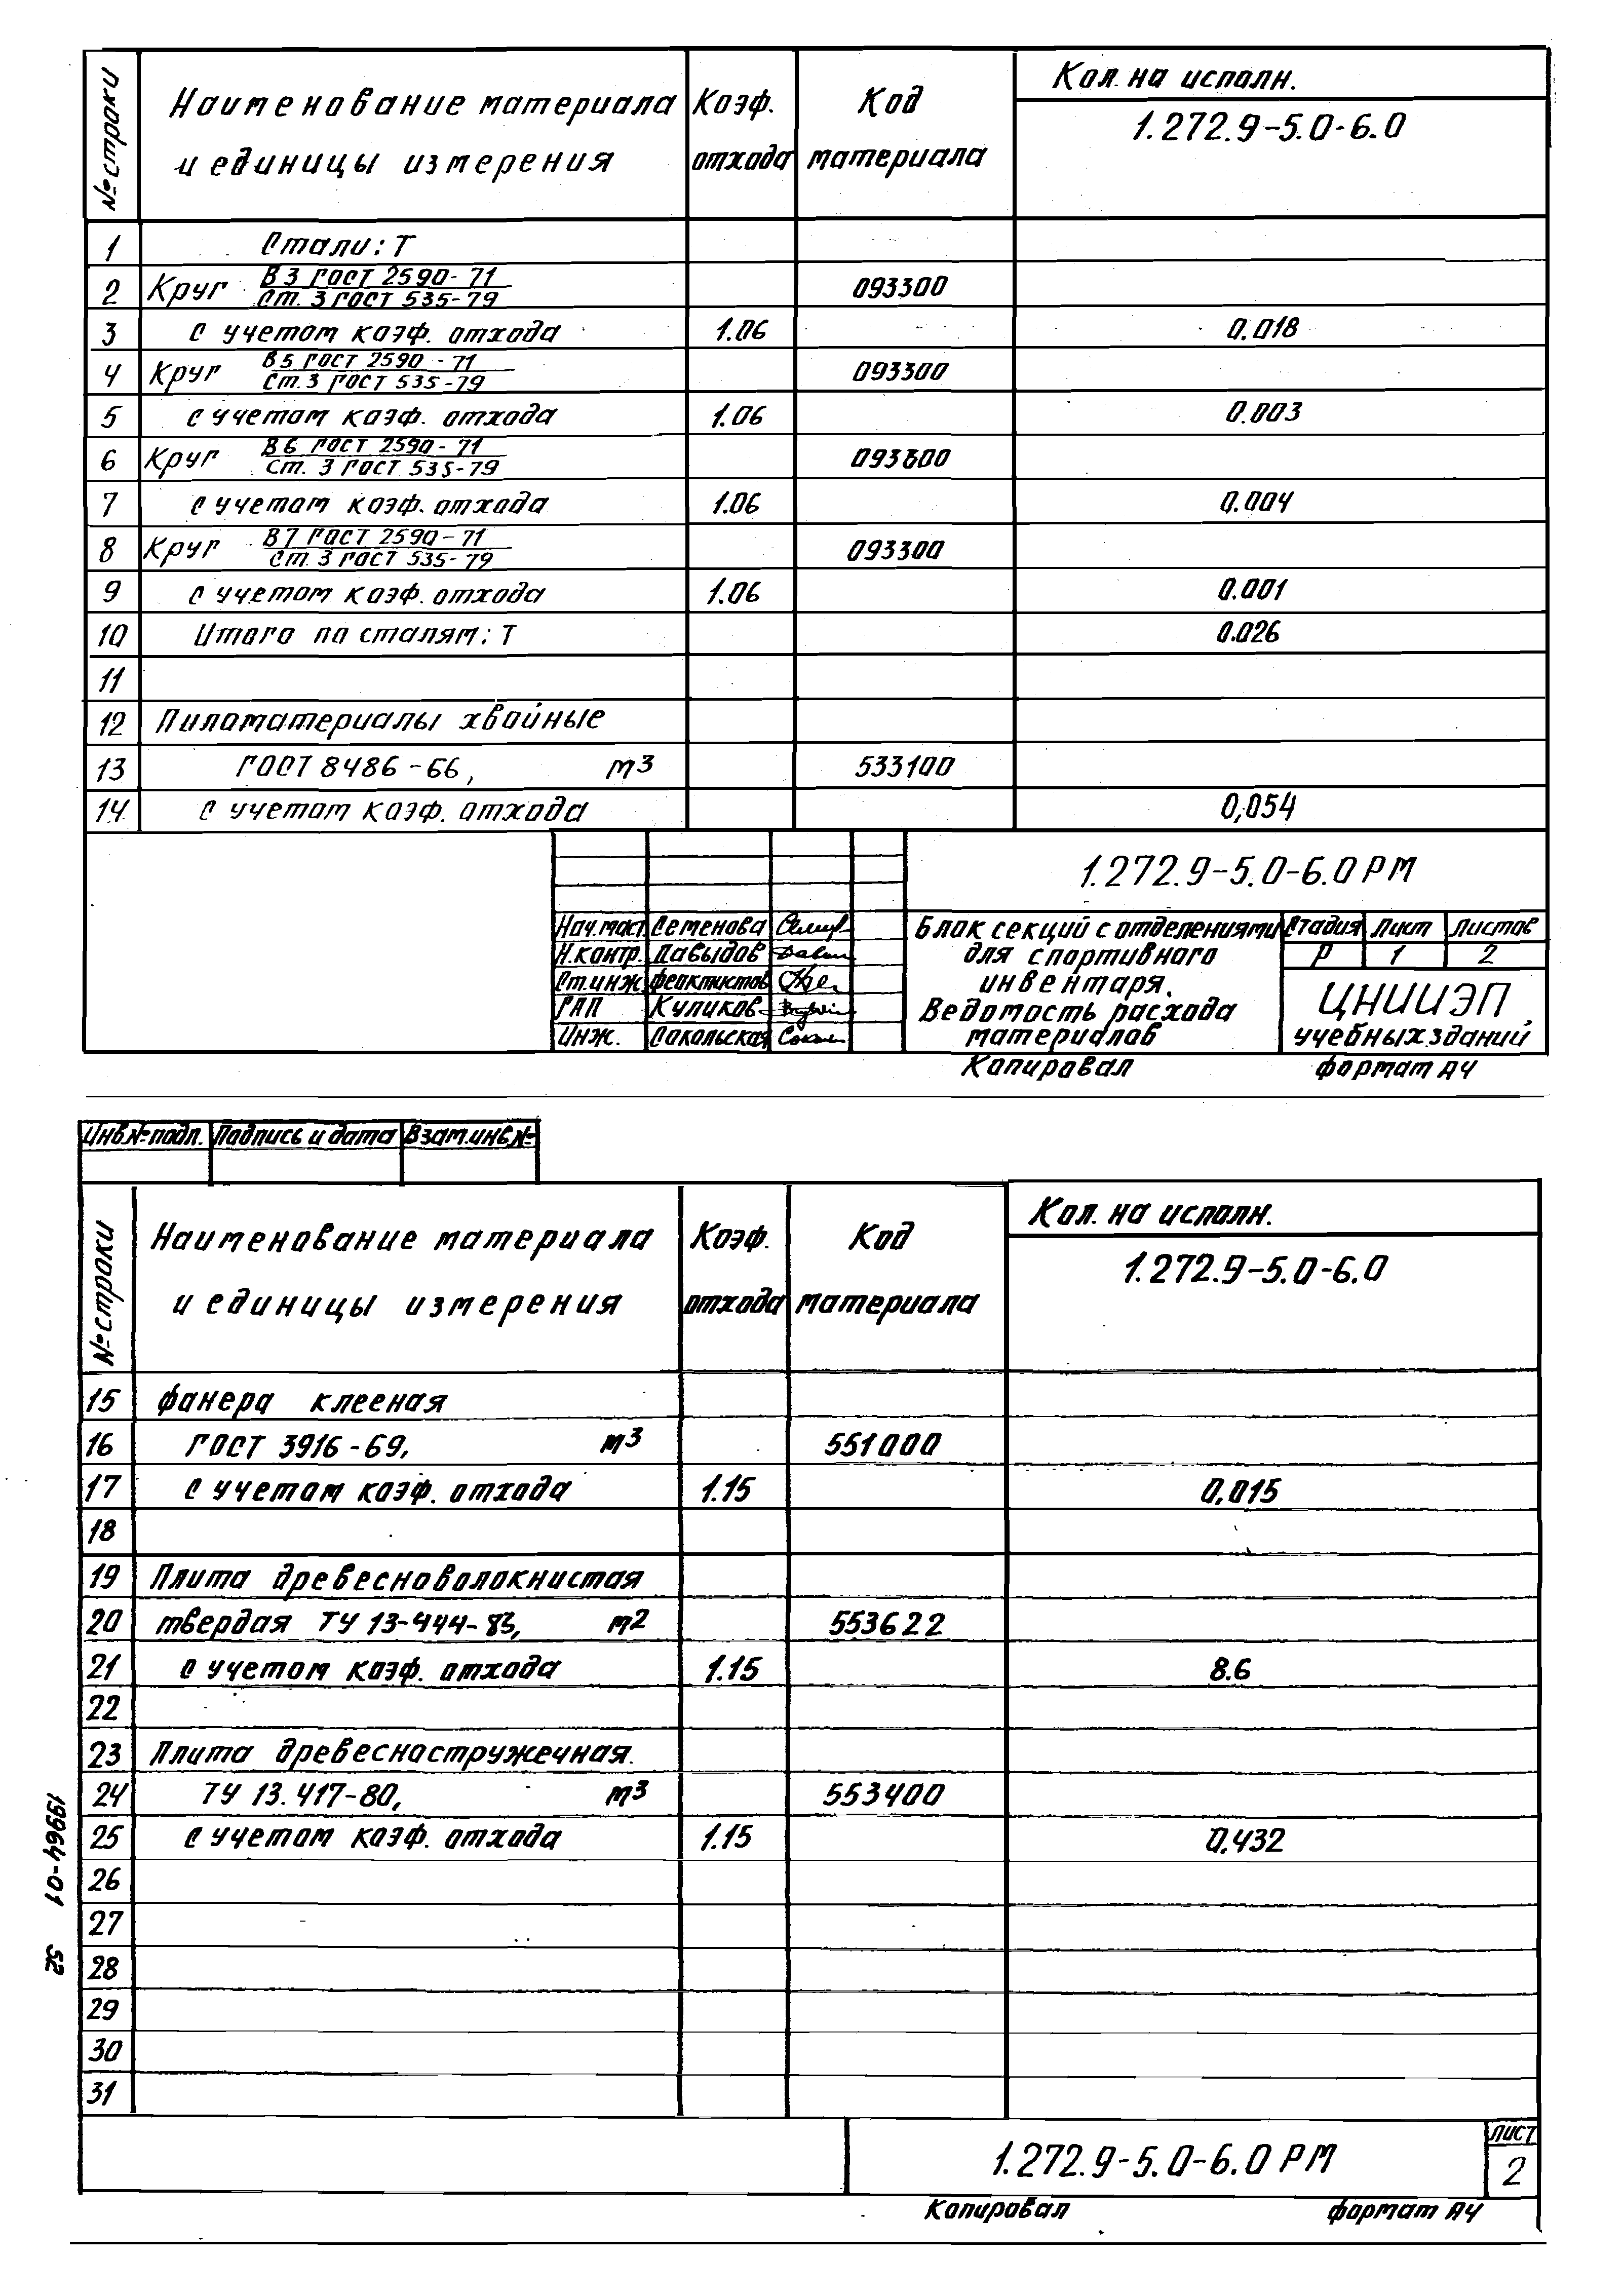 № строки
Наименование материала
и единицы измерения
Коэф.
отхода
Код
материала
Кол. на исполн.
1.272.9-5.0-6.0
1 Стали: Т
2 Круг В3 ГОСТ 2590-71 093300
Ст. 3 ГОСТ 535-79
3 с учетом коэф. отхода 1.06 0.018
4 Круг В5 ГОСТ 2590-71 093300
Ст. 3 ГОСТ 535-79
5 с учетом коэф. отхода 1.06 0.003
6 Круг В6 ГОСТ 2590-71 093300
Ст. 3 ГОСТ 535-79
7 с учетом коэф. отхода 1.06 0.004
8 Круг В7 ГОСТ 2590-71 093300
Ст. 3 ГОСТ 535-79
9 с учетом коэф. отхода 1.06 0.001
10 Итого по сталям: Т 0.026
11
12 Пиломатериалы хвойные
13 ГОСТ 8486-66, м3 533100
14 с учетом коэф. отхода 0,054
1.272.9-5.0-6.0 РМ
Нач.маст. Семенова
Н.контр. Давыдов
Ст.инж. Феоктистов
ГАП Куликов
Инж. Сокольская
Блок секций с отделениями
для спортивного
инвентаря.
Ведомость расхода
материалов
Стадия Лист Листов
Р 1 2
ЦНИИЭП
учебных зданий
Копировал формат А4
Инв.№ подл. Подпись и дата Взам.инв.№
№ строки
Наименование материала
и единицы измерения
Коэф.
отхода
Код
материала
Кол. на исполн.
1.272.9-5.0-6.0
15 фанера клееная
16 ГОСТ 3916-69, м3 551000
17 с учетом коэф. отхода 1.15 0,015
18
19 Плита древесноволокнистая
20 твердая ТУ 13-444-83, м2 553622
21 с учетом коэф. отхода 1.15 8.6
22
23 Плита древесностружечная.
24 ТУ 13.417-80, м3 553400
25 с учетом коэф. отхода 1.15 0,432
26
27
28
29
30
31
1.272.9-5.0-6.0 РМ
лист
2
Копировал формат А4
19964-01 52